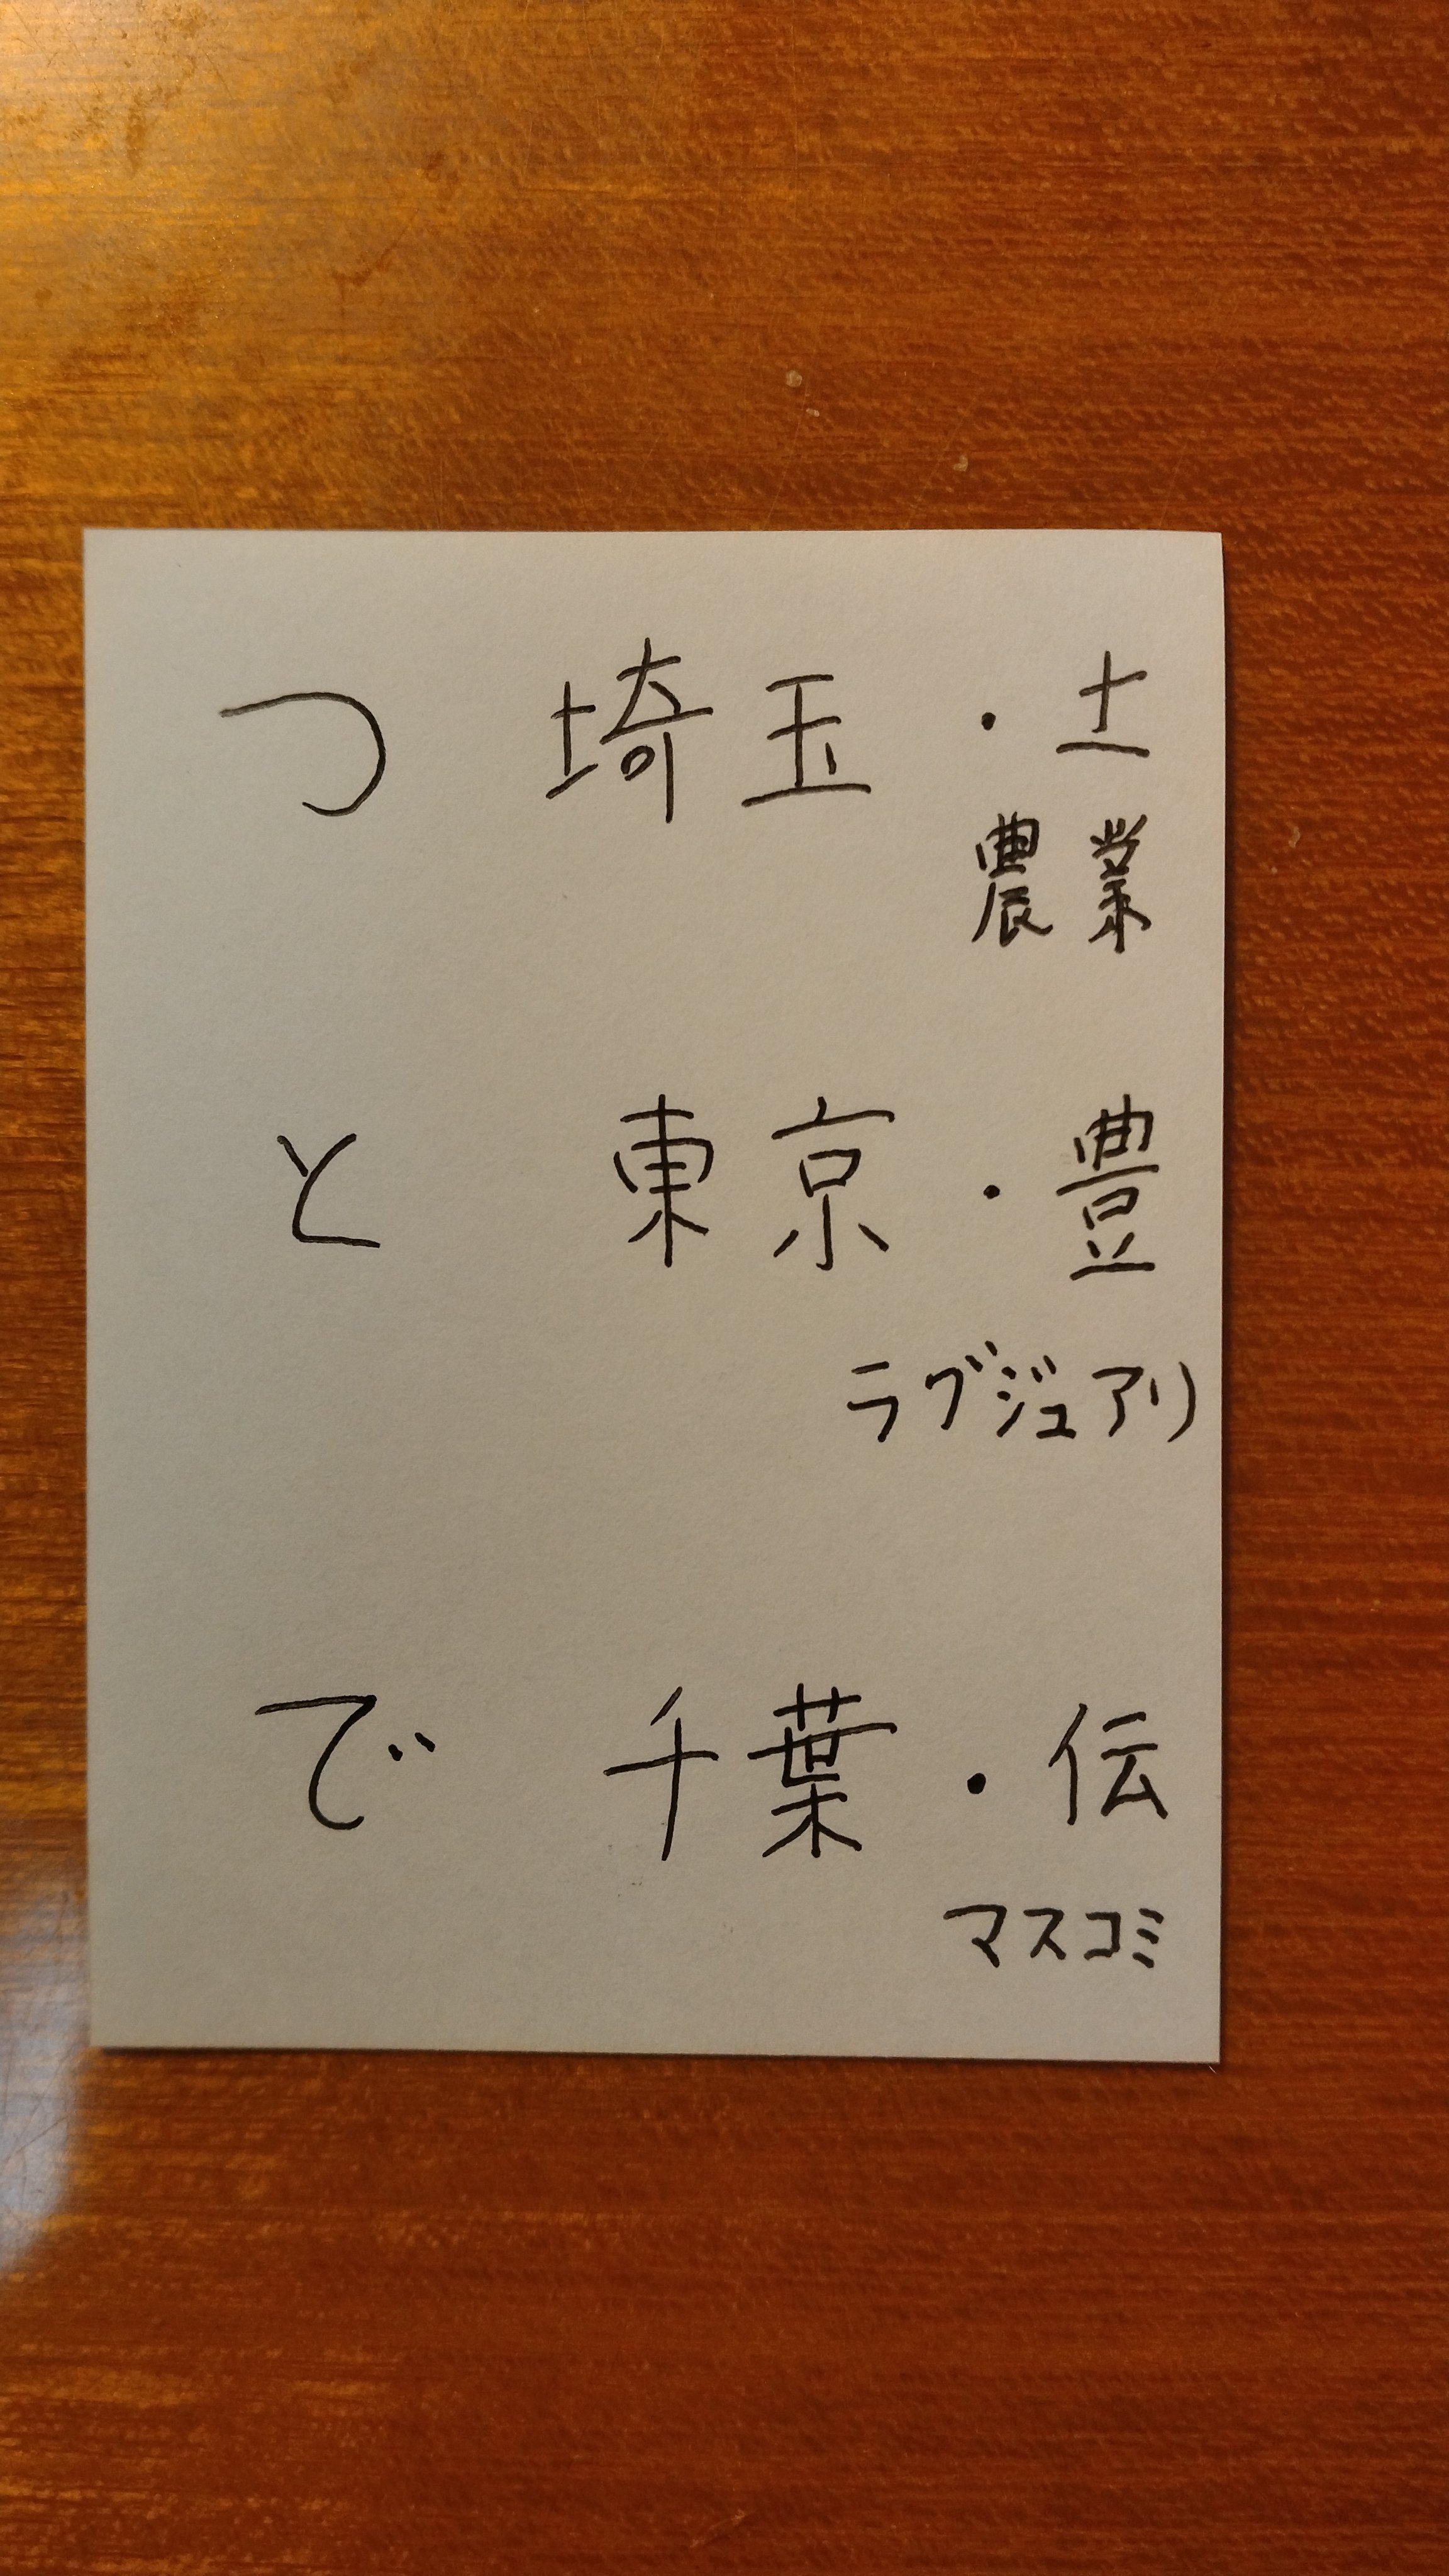 つ 埼玉・土
農業
と 東京・豊
ラグジュアリ
で 千葉・伝
マスコミ